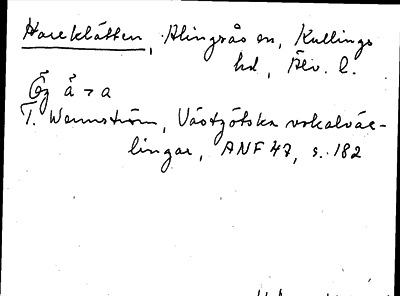 Hareklätten, Alingsås sn, Kullings
hd, Älv. l.
Ög å > a
T. Wennström, Västgötska vokalväx-
lingar, ANF 47, s. 182